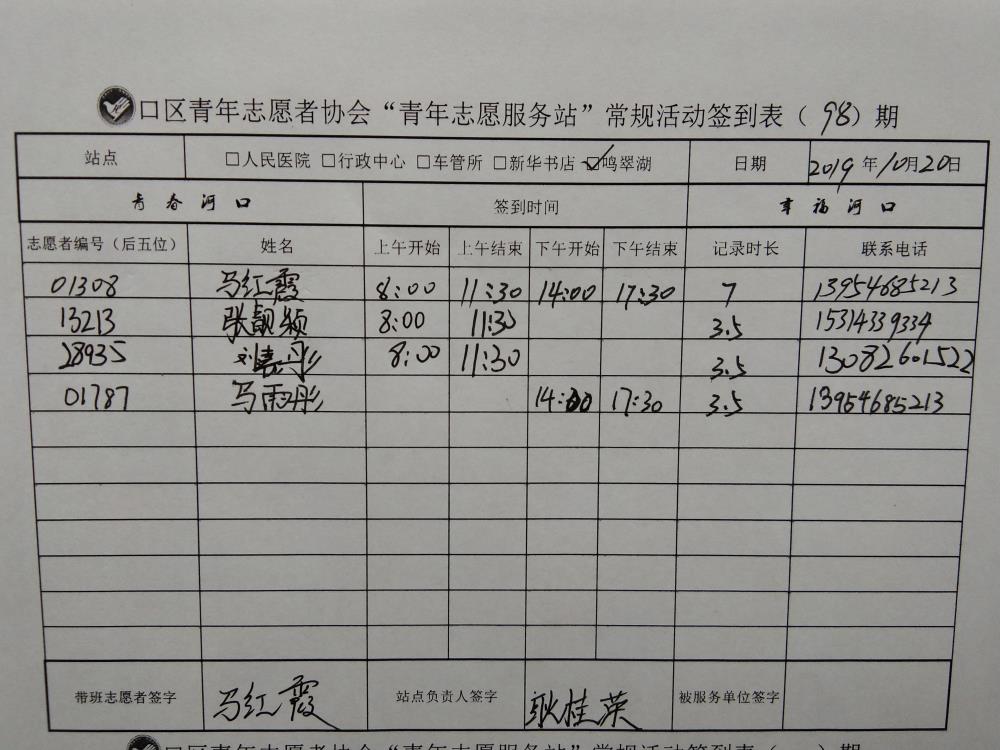 口区青年志愿者协会“青年志愿服务站”常规活动签到表（98）期
站点 □人民医院 □行政中心 □车管所 □新华书店 ☑鸣翠湖 日期 2019年10月20日
青春河口 签到时间 幸福河口
志愿者编号（后五位） 姓名 上午开始 上午结束 下午开始 下午结束 记录时长 联系电话
01308 马红霞 8:00 11:30 14:00 17:30 7 13954685213
13213 张靓颖 8:00 11:30 3.5 15314339334
28935 刘彤 8:00 11:30 3.5 13082601522
01787 马雨彤 14:00 17:30 3.5 13954685213
带班志愿者签字 马红霞 站点负责人签字 耿桂荣 被服务单位签字
口区青年志愿者协会“青年志愿服务站”常规活动签到表（ ）期